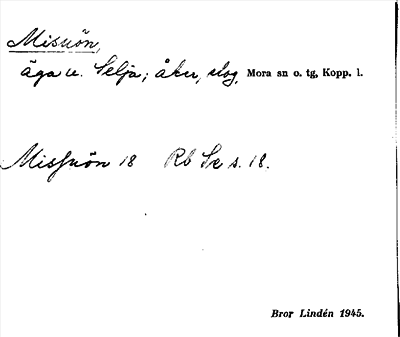 Misuön,
äga u. Selja; åker, slog, Mora sn o. tg, Kopp. l.
Missuön 18 Rb Se s. 18.
Bror Lindén 1945.